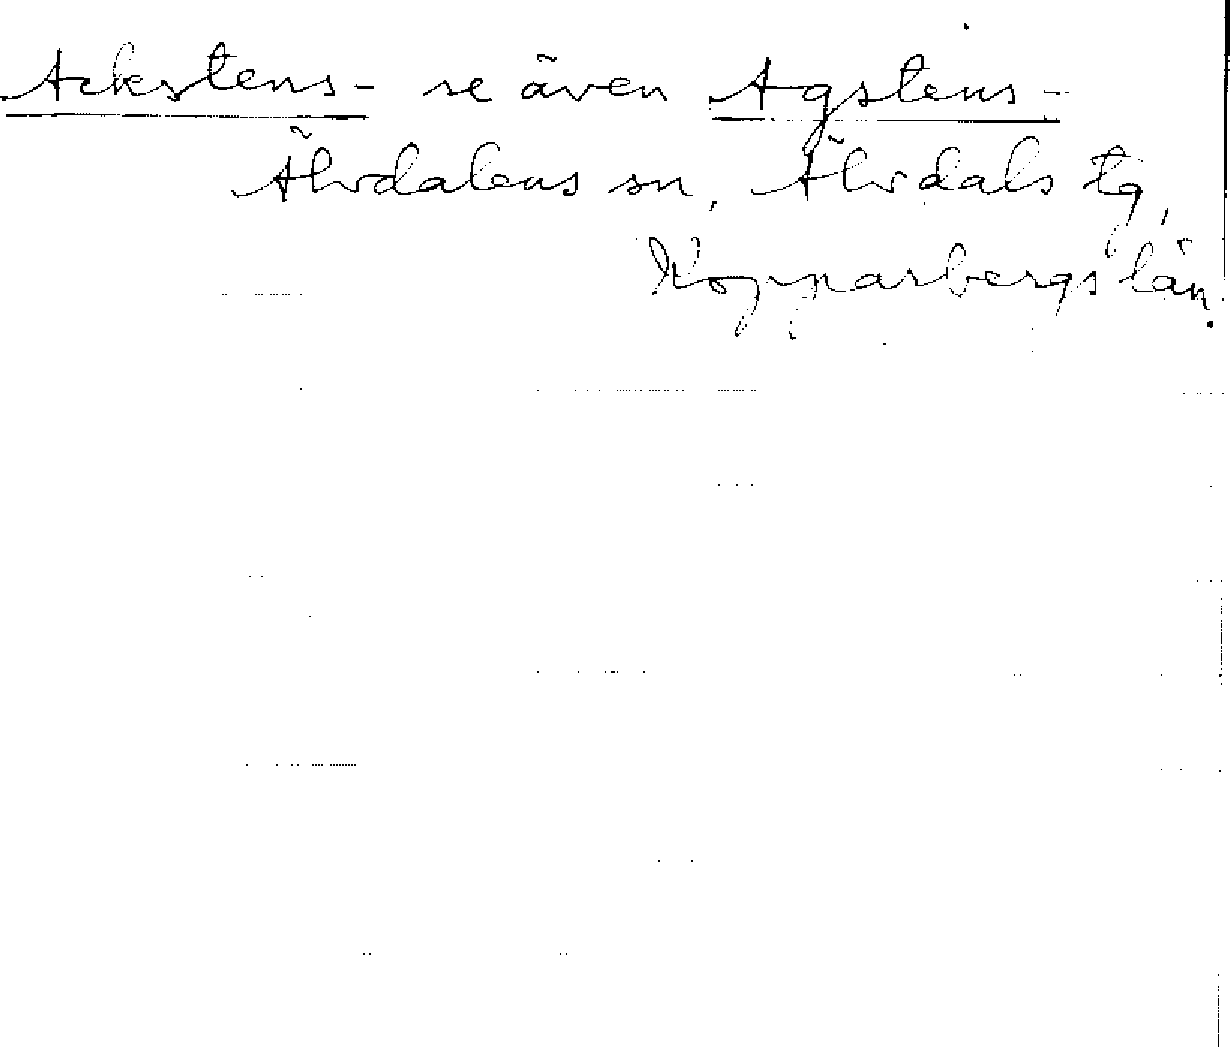 Ackstens- se även Agstens-
Älvdalens sn, Älvdals tg,
Kopparbergs län.